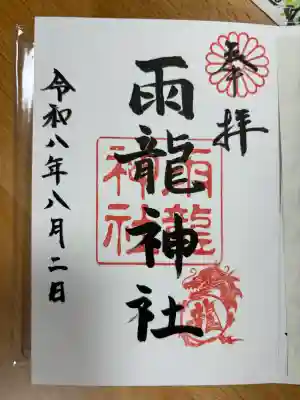 奉拝
雨龍神社
雨龍
神社
龍
令和八年八月二日